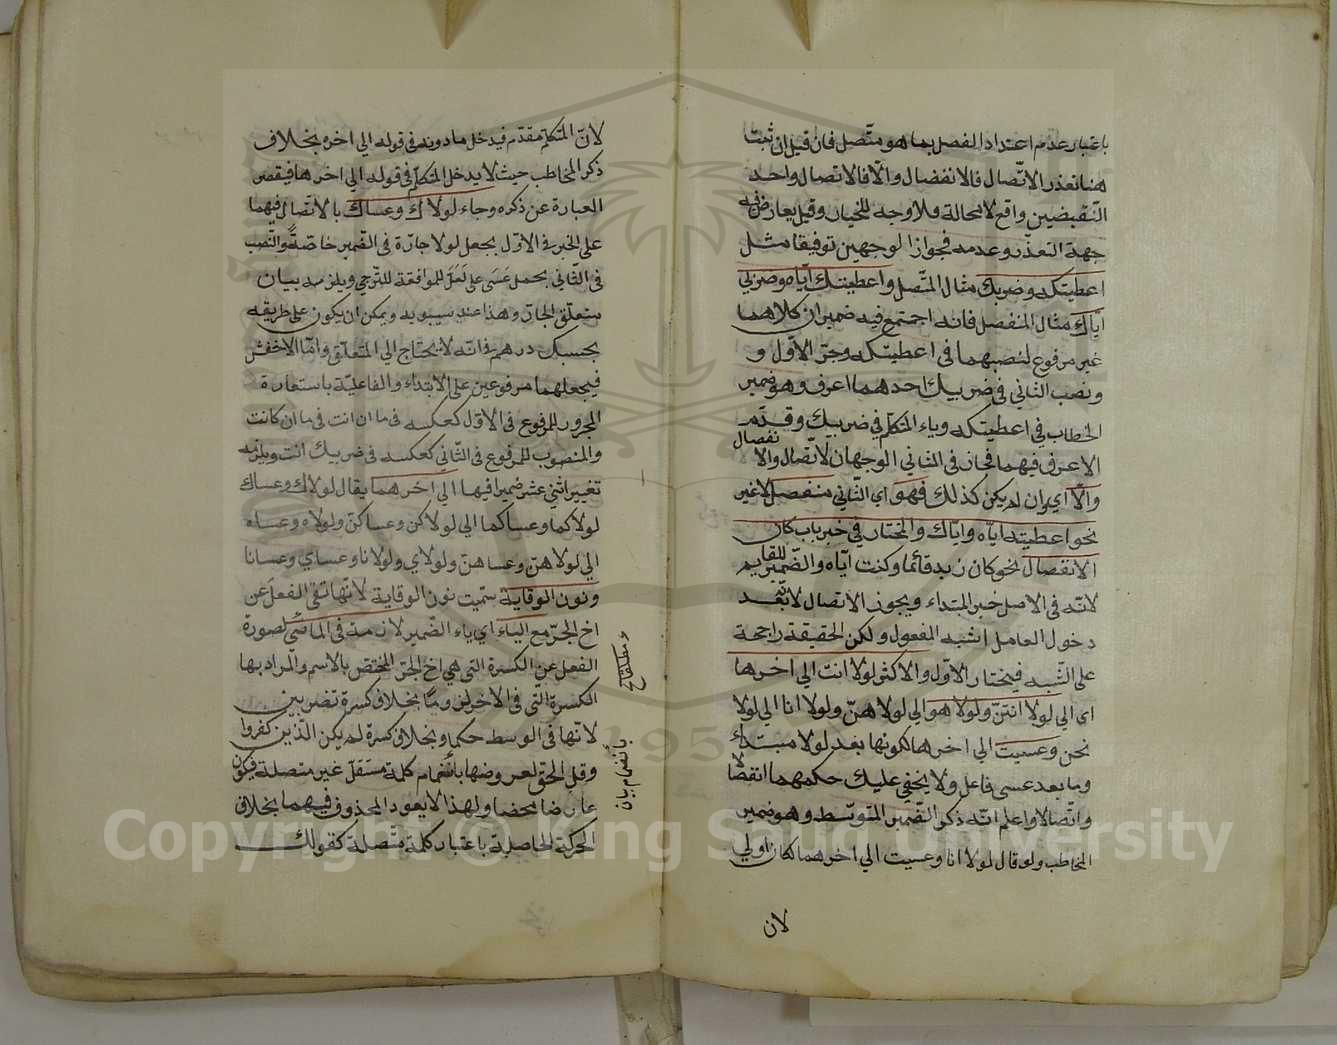 باعتبار عدم اعتداد الفصل بما هو متصل فان قيل ان ثبت
هنا تعذر الاتصال فالانفصال والا فالاتصال واحد
النقيضين واقع لا محالة ولا وجه للخيار وقيل يعارض فيه
جهة التعذر وعدمه فجواز الوجهين توفيقا مثل
اعطيتكه وضربك مثال المتصل واعطيتك اياه وضربي
اياك مثال المنفصل فانه اجتمع فيه ضميران كلاهما
غير مرفوع لنصبهما في اعطيتكه وجر الاول و
ونصب الثاني في ضربيك احدهما اعرف وهو ضمير
الخطاب في اعطيتكه وياء المتكلم في ضربيك وقدم
الاعرف فيهما فجاز في الثاني الوجهان الاتصال والا
نفصال
والا اي وان لم يكن كذلك فهو اي الثاني منفصل لا غير
نحو اعطيته اياه واياك والمختار في خبر باب كان
الانفصال نحو كان زيد قائما وكنت اياه والضمير للقايم
لانه في الاصل خبر المبتداء ويجوز الاتصال لانه بعد
دخول العامل اشبه المفعول ولكن الحقيقة راجحة
على الشبه فيختار الاول والاكثر لولا انت الي اخرها
اي الي لولا انتن ولولا هو الي لولا هن ولولا انا الي لولا
نحن وعسيت الي اخرها لكونها بعد لولا مبتداء
وما بعد عسى فاعل ولا يخفي عليك حكمهما انفصالا
واتصالا واعلم انه ذكر الضمير المتوسط وهو ضمير
المخاطب ولو قال لولا انا وعسيت الي اخرهما لكان اولي
لان
لان المتكلم مقدم فيدخل ما دونه في قوله الي اخره بخلاف
ذكر المخاطب حيث لا يدخل المتكلم في قوله الي اخرها فيقصر
العبارة عن ذكره وجاء لولاك وعساك بالاتصال فيهما
على الخبر في الاول بجعل لولا جارة في الضمير خاصة والنصب
في الثاني بحمل عسى على لعل للموافقة للترجي ويلزمه بيان
متعلق الجار وهذا عند سيبويه ويمكن ان يكون على طريقه
بحسبك درهم فانه لا يحتاج الي المتعلق واما الاخفش
فيجعلهما مرفوعين على الابتداء والفاعلية باستعارة
المجرور للمرفوع في الاول كعكسه في ما ان انت في ما ان كانت
والمنصوب للمرفوع في الثاني كعكسه في ضربيك انت ويلزمه
تغيير اثني عشر ضميرا فيها الي اخرهما يقال لولاك وعساك
لولاكما وعساكما الي لولاكن وعساكن ولولاه وعساه
الي لولاهن وعساهن ولولاي ولولانا وعساي وعسانا
ونون الوقاية سميت نون الوقاية لانها تقي الفعل عن
اخ الجر مع الياء اي ياء الضمير لازمة في الماضي لصورة
الفعل عن الكسرة التي هي اخ الجر المختص بالاسم والمراد بها
الكسرة التي في الاخر لزوما بخلاف كسرة تضربين
لانها في الوسط حكما وبخلاف كسرة لم يكن الذين كفروا
وقل الحق لعروضها بانضمام كلمة مستقل غير متصلة فيكون
عارضا محضا ولهذا لا يعود المحذوف فيهما بخلاف
الحركة الحاصلة باعتبار كلمة متصلة كقولك
Copyright © King Saud University
1957